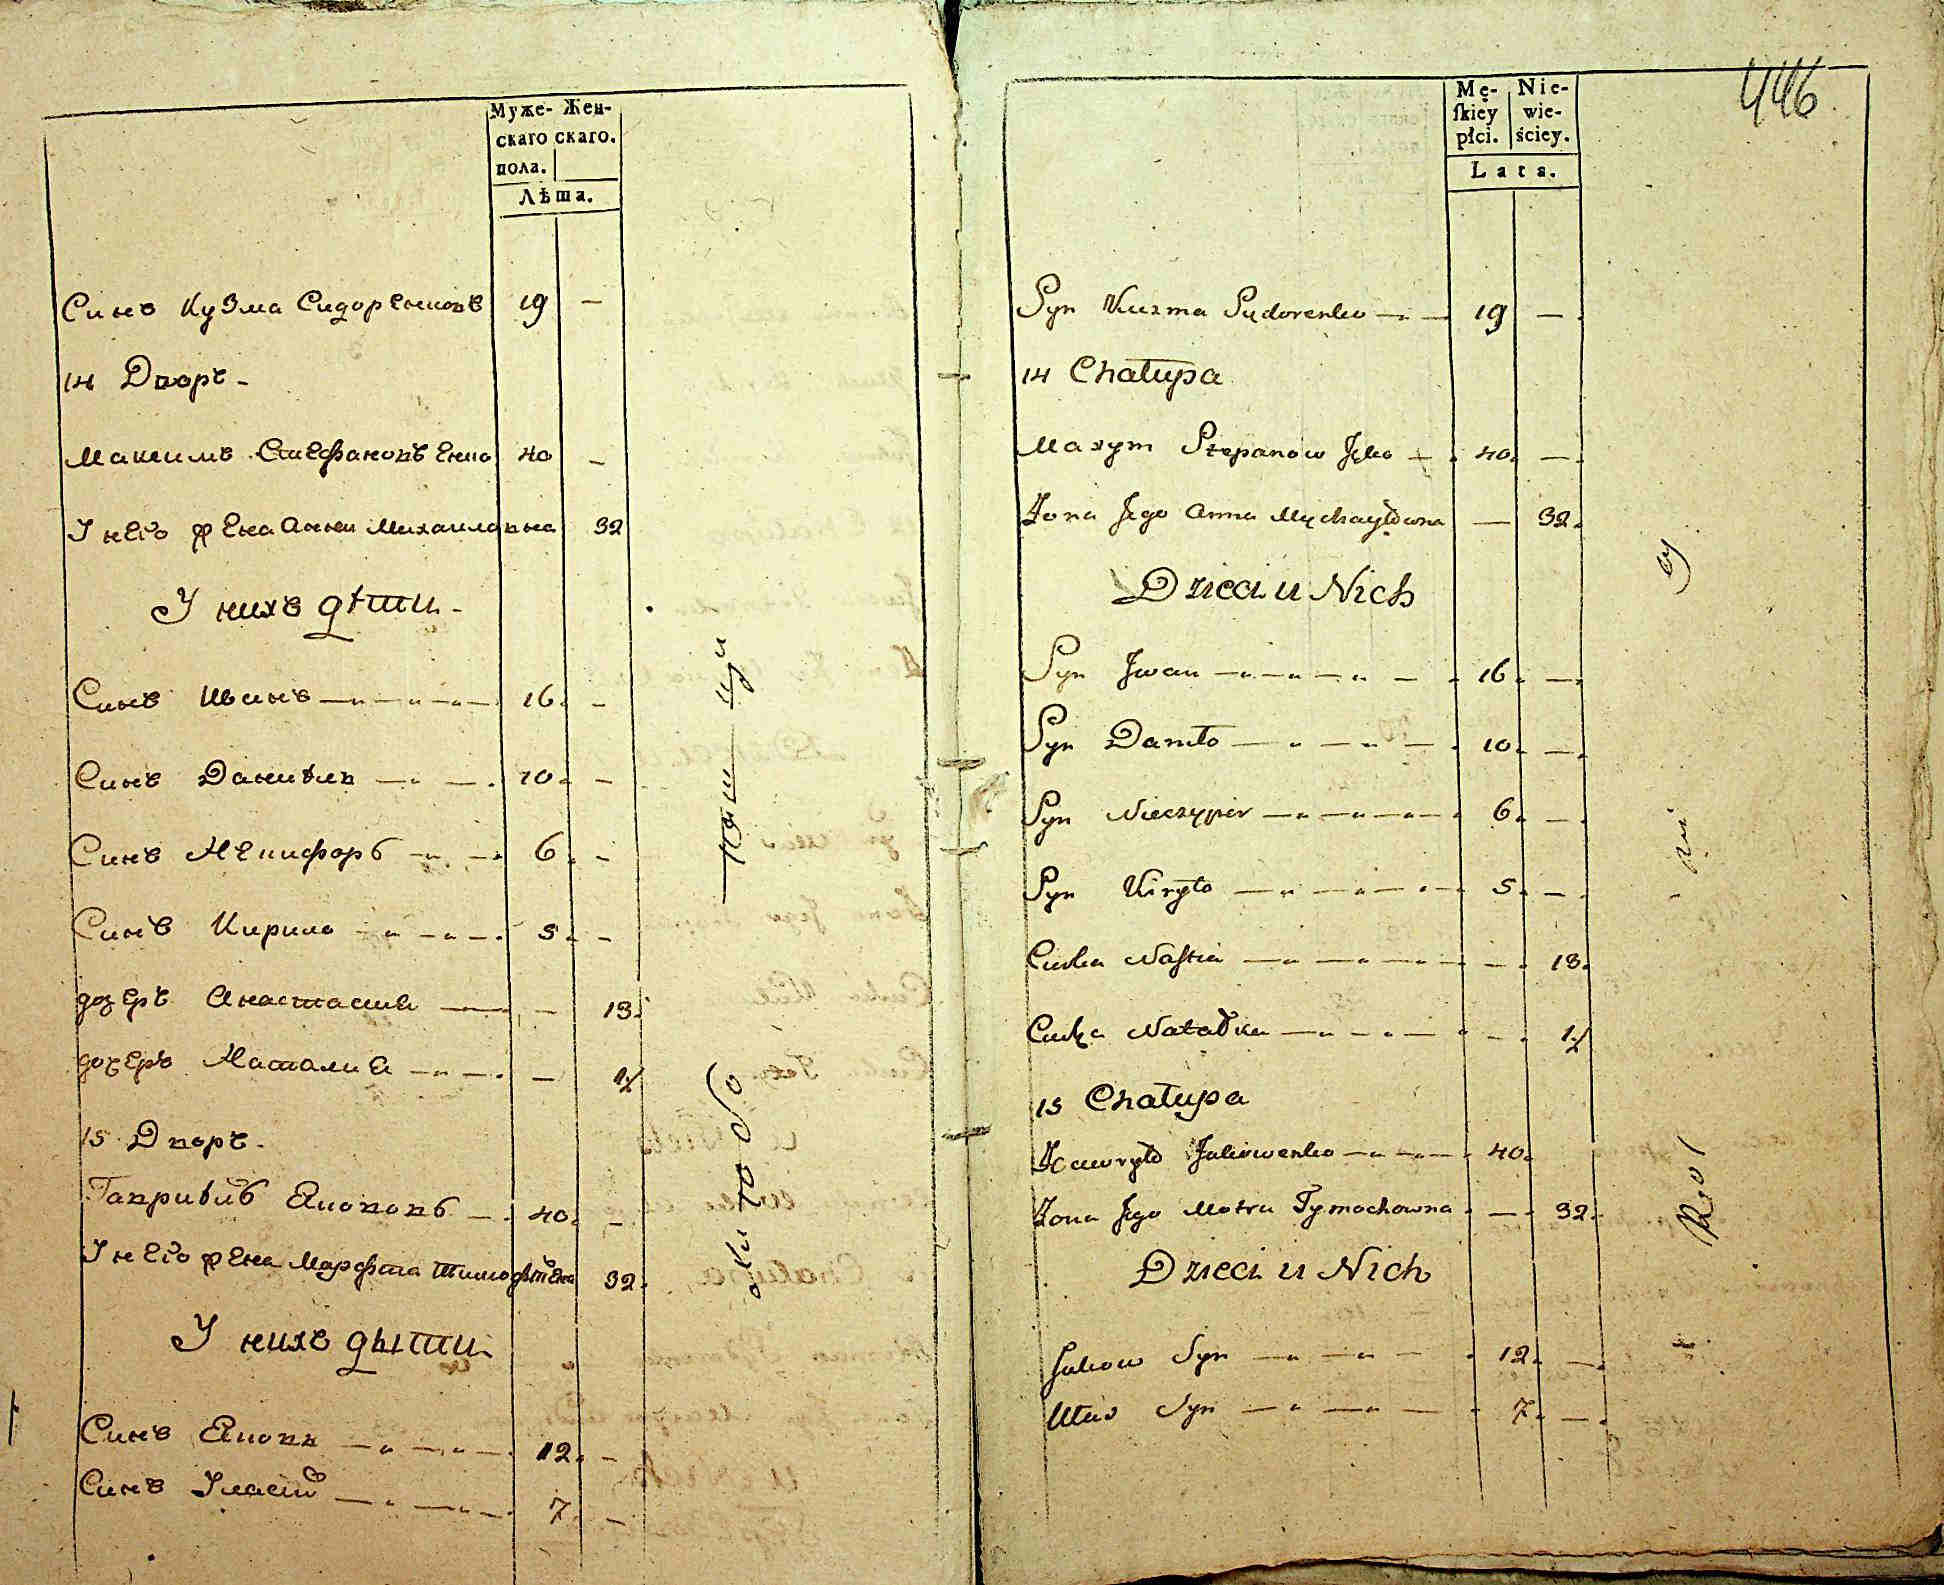 Муже- Жен-
скаго скаго.
пола.
Лѣта.
Синъ Кузма Сидоренковъ 19 —
14 Дворъ -
Максимъ Стефановъ Енко 40 —
У него жена Анна Михаиловна 32
У нихъ дѣти -
Синъ Иванъ 16. -
Синъ Даниилъ 10. -
Синъ Никифоръ 6. -
Синъ Кирило 5. -
дочеръ Анастасия — 13.
дочеръ Наталия — 1/2
15 Дворъ.
Гавриилъ Яковъ 40. -
У него жена Марфта Тимофѣева 32.
У нихъ дѣти
Синъ Яковъ 12. -
Синъ Уласий 7. -
446
Mę- Nie-
ſkiey wie-
płci. ściey.
Lata.
Syn Kuzma Sydorenko 19 —
14 Chałupa
Maxym Stepanow Jęko 40. —
Żona Jego Anna Mychayłowna — 32.
Dzieci u Nich
Syn Jwan 16. —
Syn Daniło 10. —
Syn Nieczypir 6. —
Syn Kiryło 5. —
Curka Naſtia — 13.
Curka Natałka — 1/2
15 Chałupa
Hawryło Jakowenko 40.
Żona Jego Motra Tymochowna — 32.
Dzieci u Nich
Jakow Syn 12. —
Ułas Syn 7. —